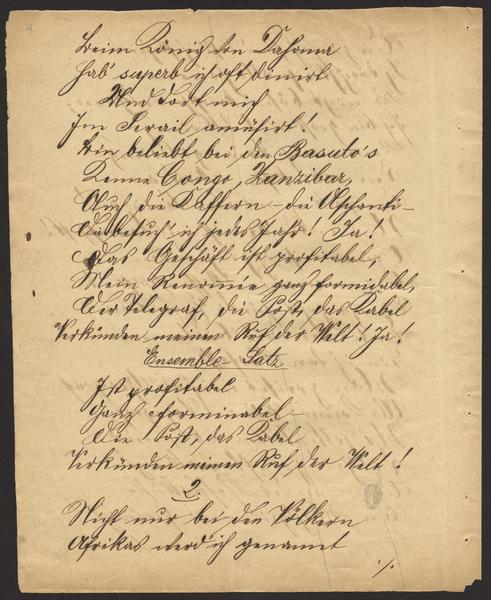 Beim König von Dahoma
Hab' superb ich oft dinirt
Und dort mich
Im Serail amüsirt!
Bin beliebt bei den Basuto's
Kenne Congo, Zanzibar,
Auch die Kaffern – die Aschanti –
Da besuch' ich jedes Jahr! Ja!
Das Geschäft ist profitabel,
Mein Renommée ganz formidabel,
Der Telegraf, die Post, das Kabel
Verkünden meinen Ruf der Welt! Ja!
Ensemble-Satz
Ist profitabel
Ganz forminabel –
Die Post, das Kabel
Verkünden meinen Ruf der Welt!
2.
Nicht nur bei den Völkern
Afrikas werd' ich genannt
./.